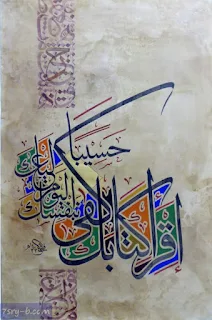 إقرأ كتابك كفى
بنفسك اليوم عليك
حسيبا
7sry-b.com